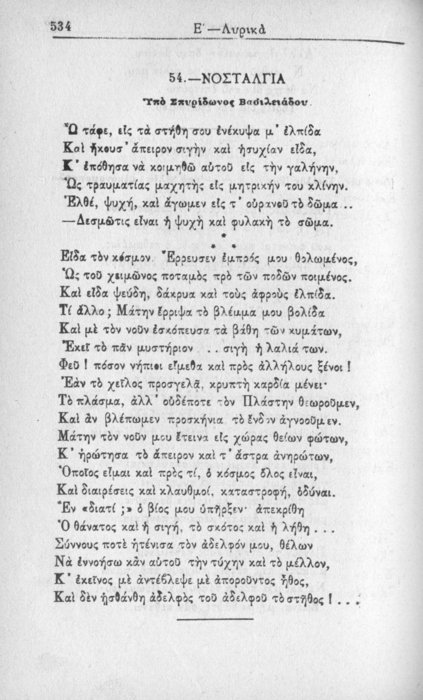 534
Ε′—Λυρικὰ
54.—ΝΟΣΤΑΛΓΙΑ
Ὑπὸ Σπυρίδωνος Βασιλειάδου.
Ὦ τάφε, εἰς τὰ στήθη σου ἐνέκυψα μ’ ἐλπίδα
Καὶ ἤκουσ’ ἄπειρον σιγὴν καὶ ἡσυχίαν εἶδα,
Κ’ ἐπόθησα νὰ κοιμηθῶ αὐτοῦ εἰς τὴν γαλήνην,
Ὡς τραυματίας μαχητὴς εἰς μητρικήν του κλίνην.
Ἐλθέ, ψυχή, καὶ ἄγωμεν εἰς τ’ οὐρανοῦ τὸ δῶμα ..
—Δεσμῶτις εἶναι ἡ ψυχὴ καὶ φυλακὴ τὸ σῶμα.
* * *
Εἶδα τὸν κόσμον. Ἔρρευσεν ἐμπρός μου θολωμένος,
Ὡς τοῦ χειμῶνος ποταμὸς πρὸ τῶν ποδῶν ποιμένος.
Καὶ εἶδα ψεύδη, δάκρυα καὶ τοὺς ἀφροὺς ἐλπίδα.
Τί ἄλλο ; Μάτην ἔρριψα τὸ βλέμμα μου βολίδα
Καὶ μὲ τὸν νοῦν ἐσκόπευσα τὰ βάθη τῶν κυμάτων,
Ἐκεῖ τὸ πᾶν μυστήριον ... σιγὴ ἡ λαλιά των.
Φεῦ ! πόσον νήπιοι εἴμεθα καὶ πρὸς ἀλλήλους ξένοι !
Ἐὰν τὸ χεῖλος προσγελᾷ, κρυπτὴ καρδία μένει·
Τὸ πλάσμα, ἀλλ’ οὐδέποτε τὸν Πλάστην θεωροῦμεν,
Καὶ ἂν βλέπωμεν προσκήνια τὸ ἔνδον ἀγνοοῦμεν.
Μάτην τὸν νοῦν μου ἔτεινα εἰς χώρας θείων φώτων,
Κ’ ἠρώτησα τὸ ἄπειρον καὶ τ’ ἄστρα ἀνηρώτων,
Ὁποῖος εἶμαι καὶ πρὸς τί, ὁ κόσμος ὅλος εἶναι,
Καὶ διαιρέσεις καὶ κλαυθμοί, καταστροφή, ὀδύναι.
Ἓν «διατί ;» ὁ βίος μου ὑπῆρξεν· ἀπεκρίθη
Ὁ θάνατος καὶ ἡ σιγή, τὸ σκότος καὶ ἡ λήθη ...
Σύννους ποτὲ ἠτένισα τὸν ἀδελφόν μου, θέλων
Νὰ ἐννοήσω κἂν αὐτοῦ τὴν τύχην καὶ τὸ μέλλον,
Κ’ ἐκεῖνος μὲ ἀντέβλεψε μὲ ἀποροῦντος ἦθος,
Καὶ δὲν ᾐσθάνθη ἀδελφὸς τοῦ ἀδελφοῦ τὸ στῆθος ! ...